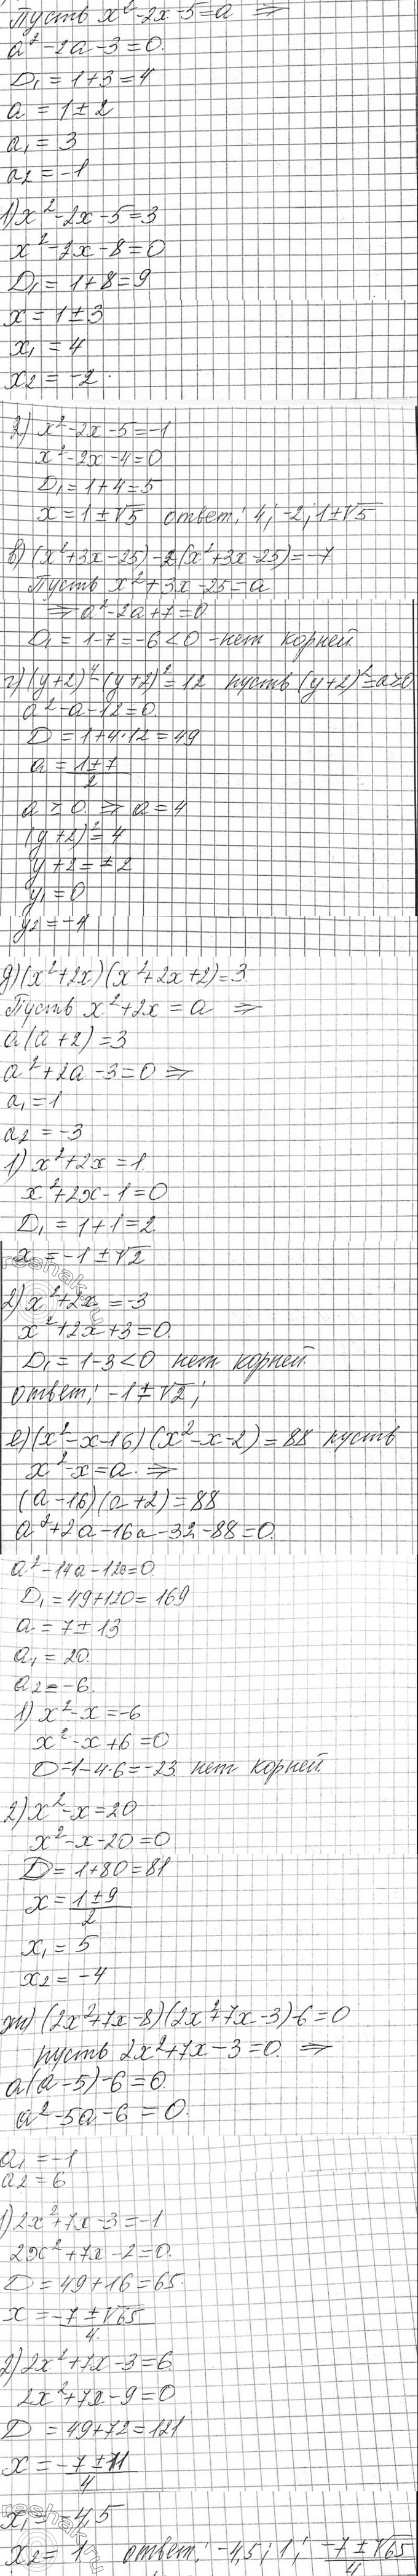 Пусть x²-2x-5=a ⇒
a²-2a-3=0.
D₁=1+3=4
a=1±2
a₁=3
a₂=-1
1) x²-2x-5=3
x²-2x-8=0
D₁=1+8=9
x=1±3
x₁=4
x₂=-2.
2) x²-2x-5=-1
x²-2x-4=0
D₁=1+4=5
x=1±√5 ответ: 4; -2; 1±√5
в) (x²+3x-25)-2(x²+3x-25)=-7
Пусть x²+3x-25=a
⇒ a²-2a+7=0
D₁=1-7=-6<0 -нет корней
г) (y+2)⁴-(y+2)²=12 пусть (y+2)²=a≥0
a²-a-12=0.
D=1+4·12=49
a=(1±7)/2
a≥0 ⇒ a=4
(y+2)²=4
y+2=±2
y₁=0
y₂=-4
д) (x²+2x)(x²+2x+2)=3
Пусть x²+2x=a ⇒
a(a+2)=3
a²+2a-3=0 ⇒
a₁=1
a₂=-3
1) x²+2x=1.
x²+2x-1=0
D₁=1+1=2.
x=-1±√2
reshak.ru
2) x²+2x=-3
x²+2x+3=0.
D₁=1-3<0 нет корней
ответ: -1±√2;
е) (x²-x-16)(x²-x-2)=88 пусть
x²-x=a. ⇒
(a-16)(a+2)=88
a²+2a-16a-32-88=0.
a²-14a-120=0.
D₁=49+120=169
a=7±13
a₁=20.
a₂=-6.
1) x²-x=-6
x²-x+6=0
D=1-4·6=-23 нет корней
2) x²-x=20
x²-x-20=0
D=1+80=81
x=(1±9)/2
x₁=5
x₂=-4
ж) (2x²+7x-8)(2x²+7x-3)-6=0
пусть 2x²+7x-3=0. ⇒
a(a-5)-6=0.
a²-5a-6=0.
a₁=-1
a₂=6
1) 2x²+7x-3=-1
2x²+7x-2=0.
D=49+16=65.
x=(-7±√65)/4.
2) 2x²+7x-3=6.
2x²+7x-9=0
D=49+72=121
x=(-7±11)/4
x₁=-4,5
x₂=1. ответ: -4,5; 1; (-7±√65)/4